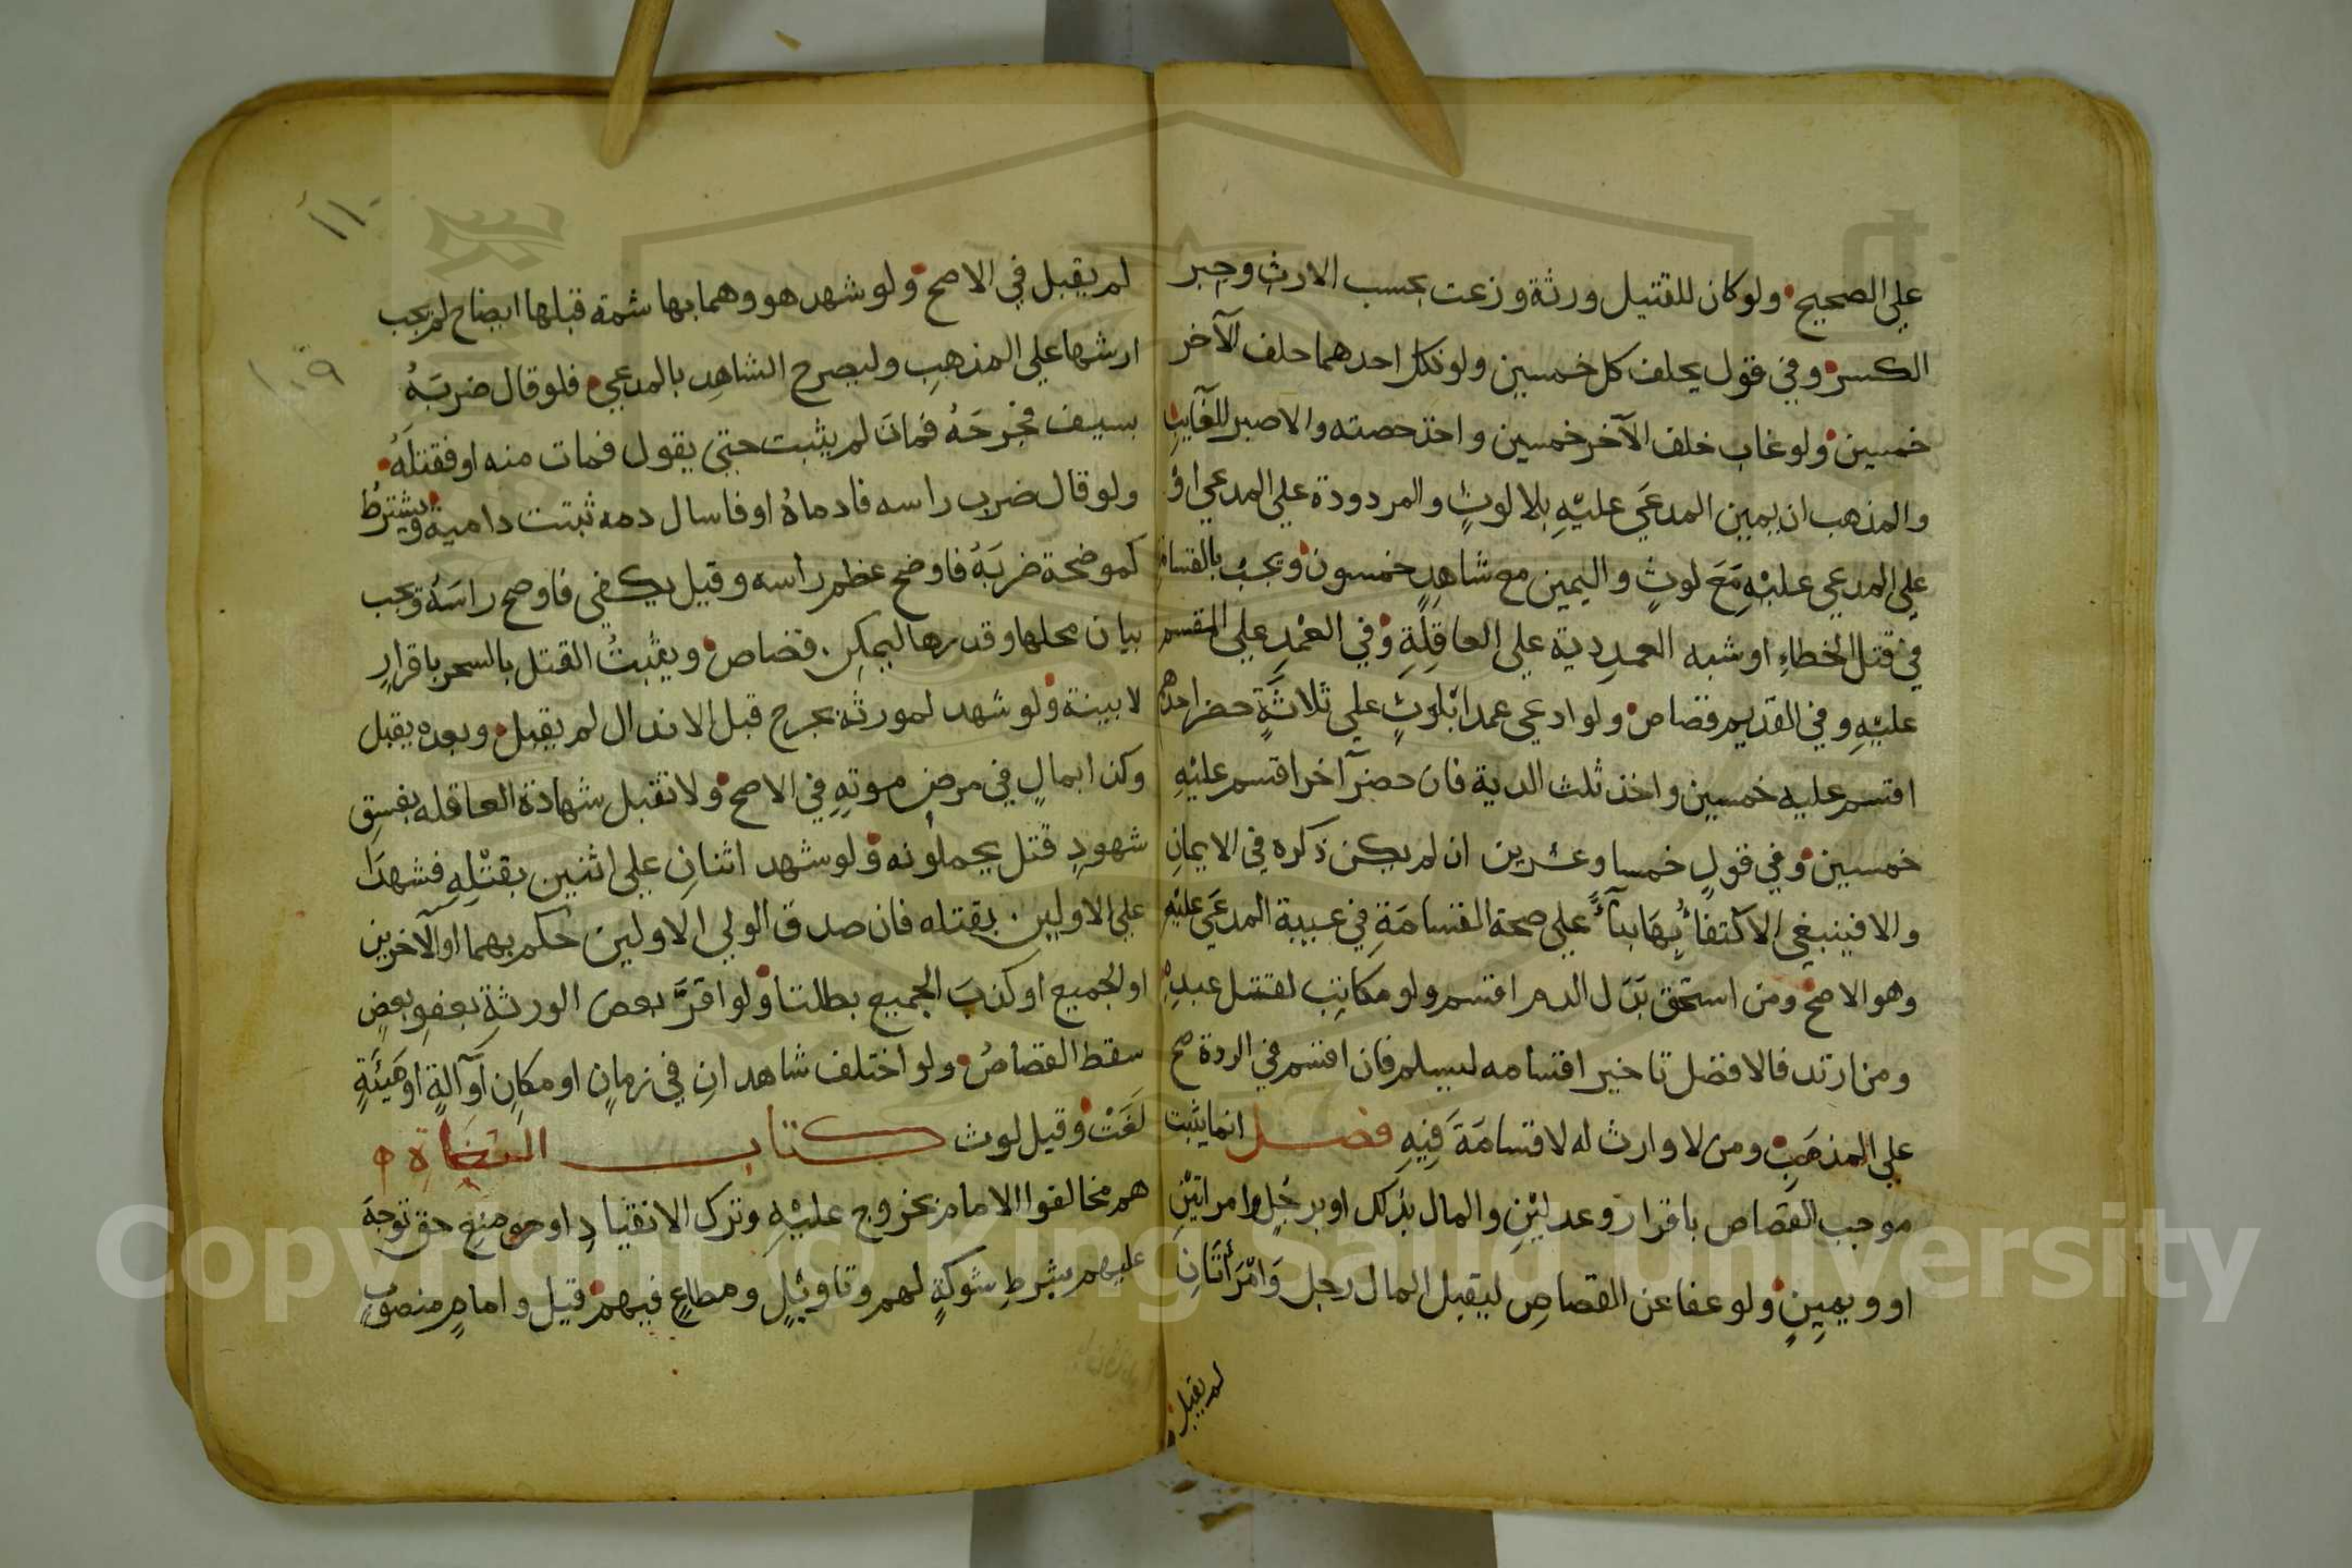 على الصحيح ولو كان للقتيل ورثة وزعت بحسب الارث وجبر
الكسر وفي قول يحلف كل خمسين ولو نكل احدهما حلف الآخر
خمسين ولو غاب حلف الآخر خمسين واخذ حصته والا صبر للغايب
والمذهب ان يمين المدعَي عليْهِ بلا لوثٍ والمردودة علي المدعي او
علي المدعي عليْهِ مَعَ لوثٍ واليمين مع شاهدٍ خمسون ويجبُ بالقسامة
في قتل الخطاءِ او شبه العمدِ دية علي العاقِلَةِ وفي العمْدِ علي المقسم
عليْهِ وفي القديم قصاص ولو ادعي عمدا بلوثٍ علي ثلاثَةٍ حضر احدهم
اقتسم عليه خمسين واخذ ثلث الدية فان حضر آخر اقتسم عليْهِ
خمسين وفي قولٍ خمسا وعشرين ان لم يكن ذكره في الايمانِ
والا فينبغي الاكتفأُ بِهَا بنآءً علي صحة القسامَةِ في غيبة المدعَي عليْهِ
وهو الاصح ومن استحق بَدَل الدم اقتسم ولو مكاتِب لقتل عبدِهِ
ومن ارتد فالافضل تاخير اقتسامه ليسلم فان اقتسم في الردة صح
علي المذهَبِ ومن لا وارث له لا قسامَةَ فِيهِ فصل انما يثبت
موجب القصاص باقرار وعدليْنِ والمال بذلك او برجُلٍ وامراتيْنِ
او ويمِينٍ ولو عفا عن القصاصِ ليقبل المال رجل وَامْرَأتَانِ
لم يقبل
١١٠
١٠٩
لم يقبل في الاصح ولو شهد هو وهما بهاشمة قبلها ايضاح لم يجب
ارشها علي المذهبِ وليصرح الشاهِد بالمدعي فلو قال ضربَهُ
بسيف فجرحَهُ فمات لم يثبت حتي يقول فمات منه او فقتلَهُ
ولو قال ضرب راسه فادماهُ او فاسال دمه ثبتت دامية ويشترطُ
لموضحة ضربَهُ فاوضح عظم راسه وقيل يكفي فاوضح راسَهُ ويجب
بيان محلها وقدرها ليمكِن قصاص ويثبتُ القتل بالسحر باقرارٍ
لا ببينة ولو شهد لمورثه بجرح قبل الاندمال لم يقبل وبعده يقبل
وكذا بمالٍ في مرضِ موتِهِ في الاصح ولا تقبل شهادة العاقله بفسقِ
شهودِ قتل يحملونه ولو شهد اثنانِ علي اثنين بقتْلِهِ فشهدَا
علي الاولين بقتله فان صدق الولي الاولين حُكم بهما او الآخرين
او الجميع او كذبَ الجميع بطلتا ولو اقرَّ بعض الورثةِ بعفوِ بعضٍ
سقط القصاصُ ولو اختلف شاهدانِ في زمانٍ او مكانٍ او آلةٍ او هَيئَةٍ
لَغَتْ وقيل لوث كتاب البغاة
هم مخالفوا الامام بخروج عليْهِ وترك الانقيادِ او منع حق توجهَ
عليهم بشرطِ شوكةٍ لهم وتاويْلٍ ومطاعٍ فيهم قيل وامامٍ منصوبٍ
Copyright © King Saud University